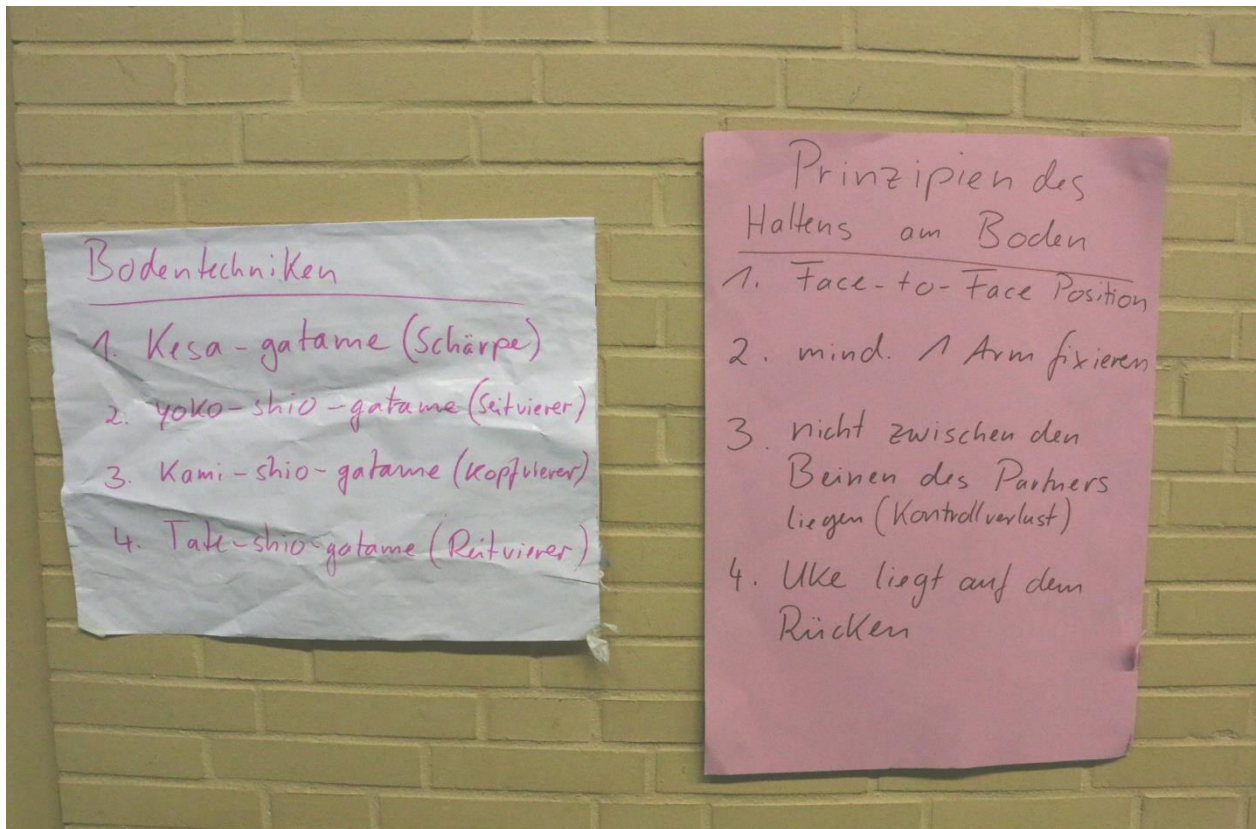 Bodentechniken
1. Kesa-gatame (Schärpe)
2. Yoko-shio-gatame (Seitvierer)
3. Kami-shio-gatame (Kopfvierer)
4. Tate-shio-gatame (Reitvierer)
Prinzipien des
Haltens am Boden
1. Face-to-Face Position
2. mind. 1 Arm fixieren
3. nicht zwischen den
Beinen des Partners
liegen (Kontrollverlust)
4. Uke liegt auf dem
Rücken